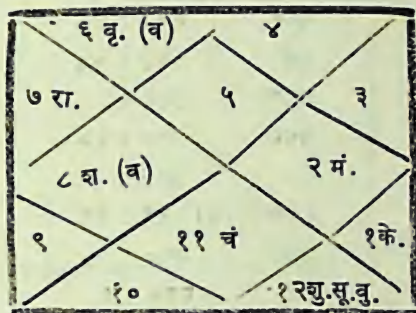 ६ वृ. (व) ४
७ रा. ५ ३
८ श. (व) २ मं.
९ ११ चं १के.
१० १२शु.सू.वु.